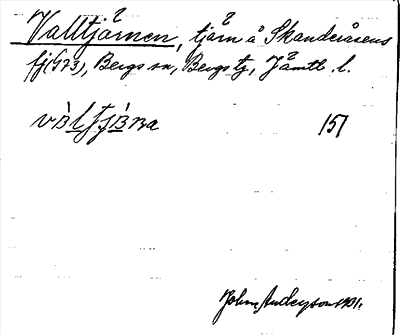 Valltjärnen, tjärn å Skanderåsens
fj(973), Bergs sn, Bergs tg, Jämtl. l.
151
John Anderson 1931.